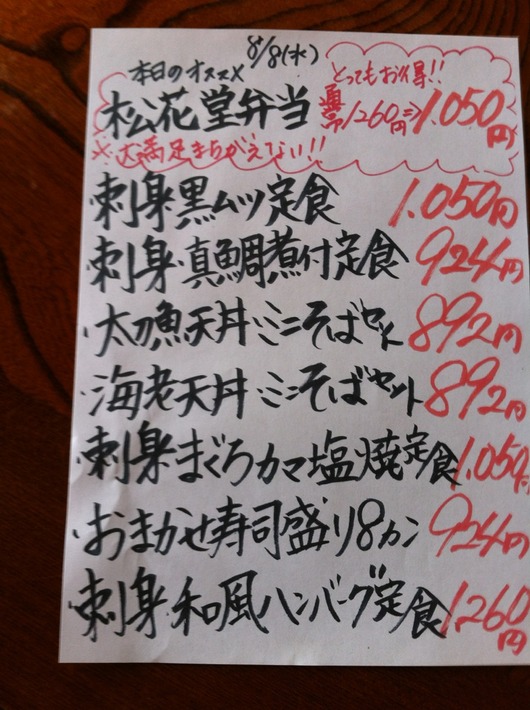 8/8(水)
本日のオススメ
とってもお得!!
松花堂弁当 通常1260円⇒1.050円
※大満足まちがえない!!
・刺身黒ムツ定食 1.050円
・刺身・真鯛煮付定食 924円
・太刀魚天丼・ミニそばセット 892円
・海老天丼・ミニそばセット 892円
・刺身・まぐろカマ塩焼定食 1.050円
・おまかせ寿司盛り8カン 924円
・刺身・和風ハンバーグ定食 1.260円